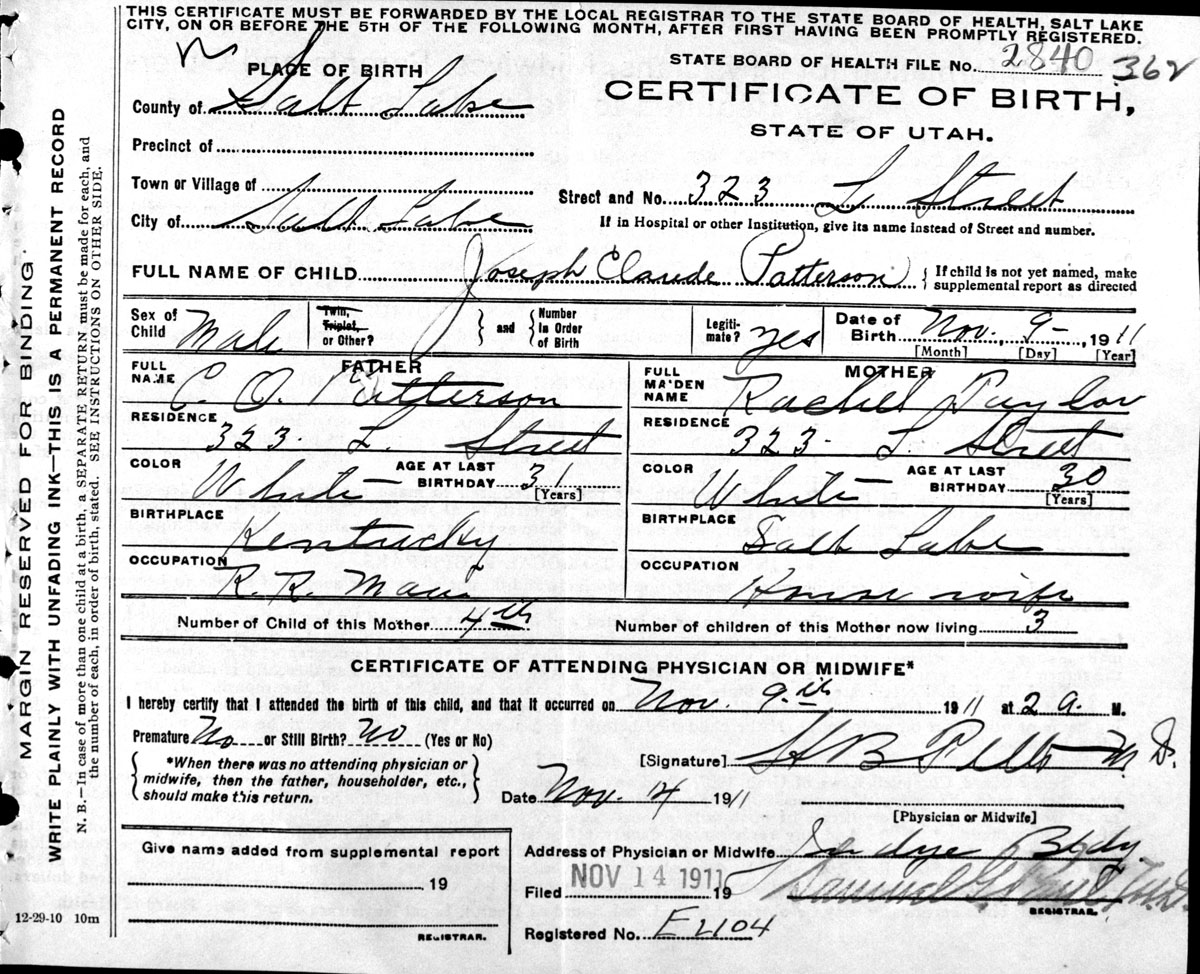 THIS CERTIFICATE MUST BE FORWARDED BY THE LOCAL REGISTRAR TO THE STATE BOARD OF HEALTH, SALT LAKE
CITY, ON OR BEFORE THE 5TH OF THE FOLLOWING MONTH, AFTER FIRST HAVING BEEN PROMPTLY REGISTERED.
STATE BOARD OF HEALTH FILE No. 2840 362
PLACE OF BIRTH
CERTIFICATE OF BIRTH,
STATE OF UTAH.
County of Salt Lake
Precinct of
Town or Village of
Street and No. 323 L Street
City of Salt Lake
If in Hospital or other Institution, give its name instead of Street and number.
FULL NAME OF CHILD Joseph Claude Patterson { If child is not yet named, make
supplemental report as directed
Sex of Child Male
Twin, Triplet, or Other? } and { Number in Order of Birth
Legiti-mate? yes
Date of Birth Nov. 9 - 1911
[Month] [Day] [Year]
FATHER
FULL NAME C. O. Patterson
RESIDENCE 323. L. Street
COLOR White AGE AT LAST BIRTHDAY 31 [Years]
BIRTHPLACE Kentucky
OCCUPATION R. R. Man
MOTHER
FULL MAIDEN NAME Rachel Taylor
RESIDENCE 323. L. Street
COLOR White AGE AT LAST BIRTHDAY 30 [Years]
BIRTHPLACE Salt Lake
OCCUPATION House wife
Number of Child of this Mother 4th Number of children of this Mother now living 3
CERTIFICATE OF ATTENDING PHYSICIAN OR MIDWIFE*
I hereby certify that I attended the birth of this child, and that it occurred on Nov. 9th 1911 at 2 a. M.
Premature No or Still Birth? No (Yes or No)
{ *When there was no attending physician or
midwife, then the father, householder, etc.,
should make this return. }
[Signature] H B M. D.
Date Nov. 14 1911
[Physician or Midwife]
Give name added from supplemental report
19
REGISTRAR.
Address of Physician or Midwife
Filed NOV 14 1911 19 M.D.
REGISTRAR.
Registered No. E4104
12-29-10 10m
MARGIN RESERVED FOR BINDING.
WRITE PLAINLY WITH UNFADING INK—THIS IS A PERMANENT RECORD
N. B.—In case of more than one child at a birth, a SEPARATE RETURN must be made for each, and
the number of each, in order of birth, stated. SEE INSTRUCTIONS ON OTHER SIDE.